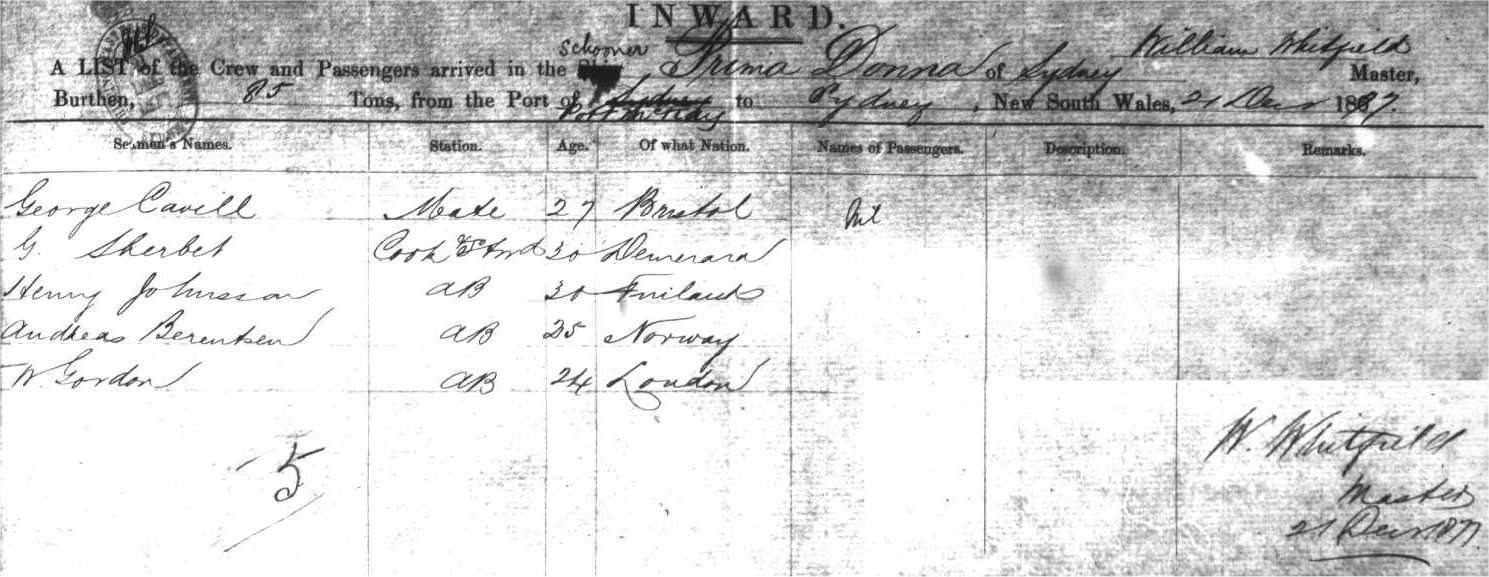 INWARD.
Schooner William Whitfield
A LIST of the Crew and Passengers arrived in the Ship Prima Donna of Sydney Master,
Burthen, 85 Tons, from the Port of Sydney to Sydney, New South Wales, 21 Decr 1877.
Port McKay
Seamen's Names. Station. Age. Of what Nation. Names of Passengers. Description. Remarks.
George Cavill Mate 27 Bristol Nil
G. Sherbet Cook & Stwd 30 Demerara
Henry Johnsson AB 30 Finland
Andreas Berentsen AB 25 Norway
W Gordon AB 24 London
W. Whitfield
5
Master
21 Decr 1877